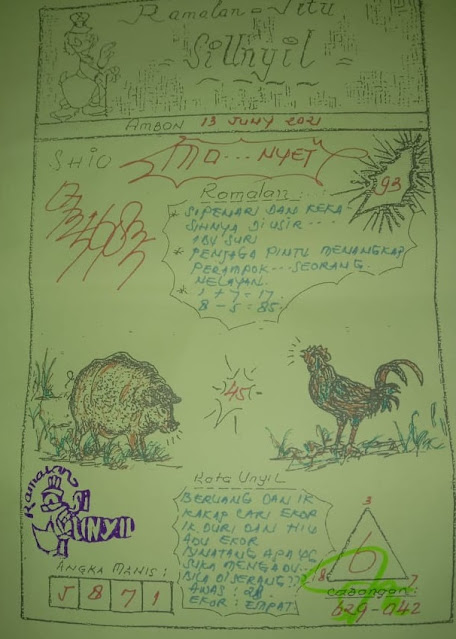 Ramalan = Jitu
Si Unyil
AMBON 13 JUNY 2021
SHIO MO... NYET
93
Ramalan:..:
* SIPENARI DAN KEKA
SIHNYA DIUSIR....
IBU SURI
* PENJAGA PINTU MENANGKAP
PERAMPOK... SEORANG
NELAYAN.
* 1 + 7 = 17.
8 - 5 = 85.
45
Kata UnyiL
BERUANG DAN IK
KAKAP CARI EKOR
IK DURI DAN HIU
ADU EKOR
BINATANG APA YG
SUKA MENGADU...
BILA DISERANG???
AWAS: 28
EKOR: EMPAT
Ramalan
Si
UNYIL
ANGKA MANIS:
5 8 7 1
3
6
8 7
CADANGAN:
629-042